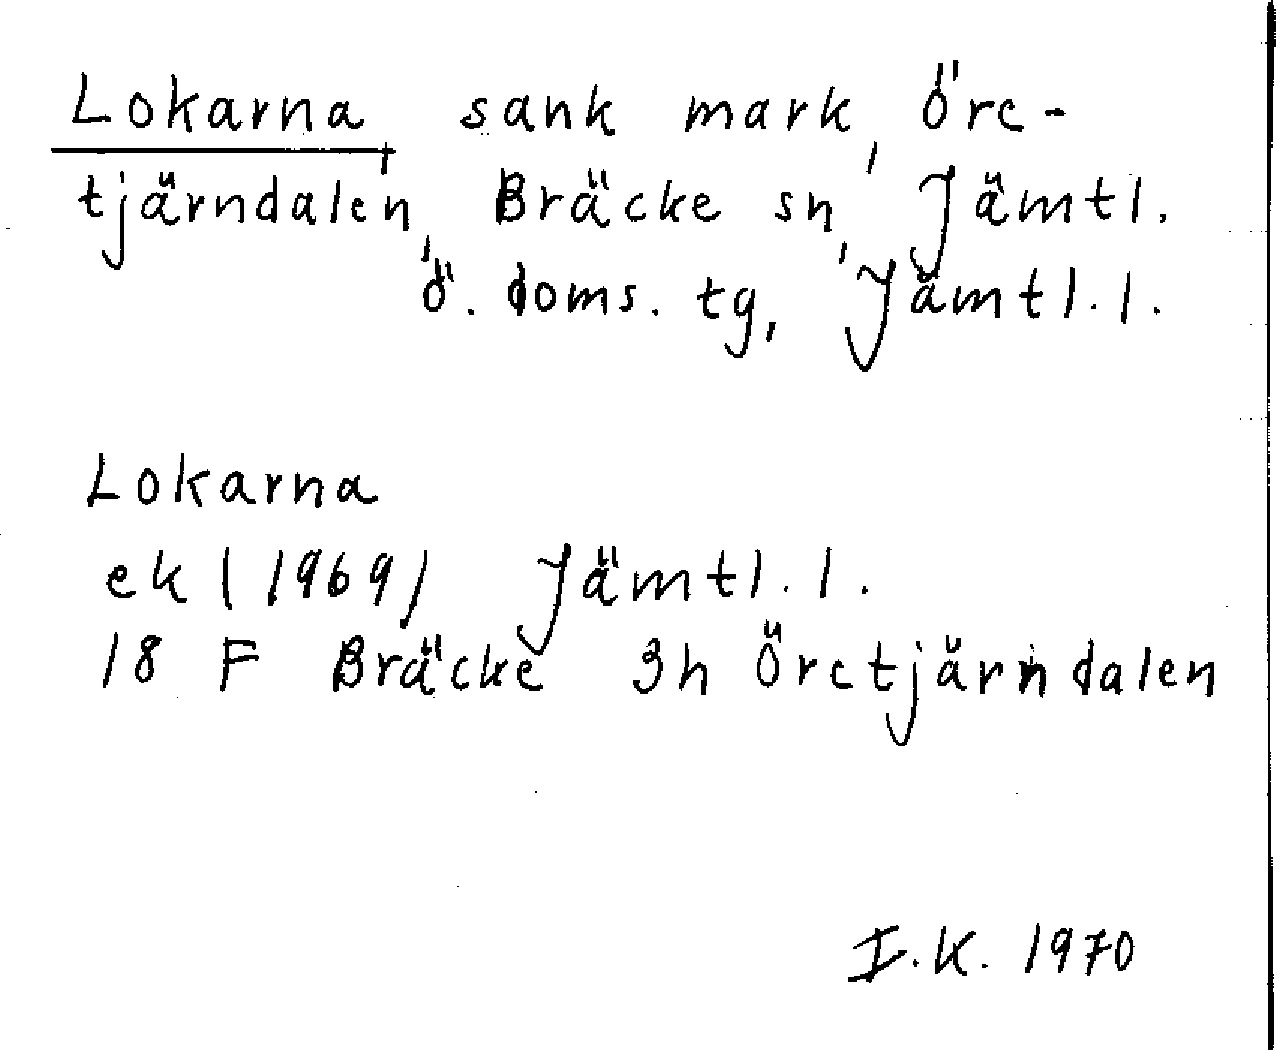 Lokarna, sank mark, Öre-
tjärndalen, Bräcke sn, Jämtl.
ö. doms. tg, Jämtl. l.
Lokarna
ek (1969) Jämtl. l.
18 F Bräcke 3h Öretjärndalen
I.K. 1970